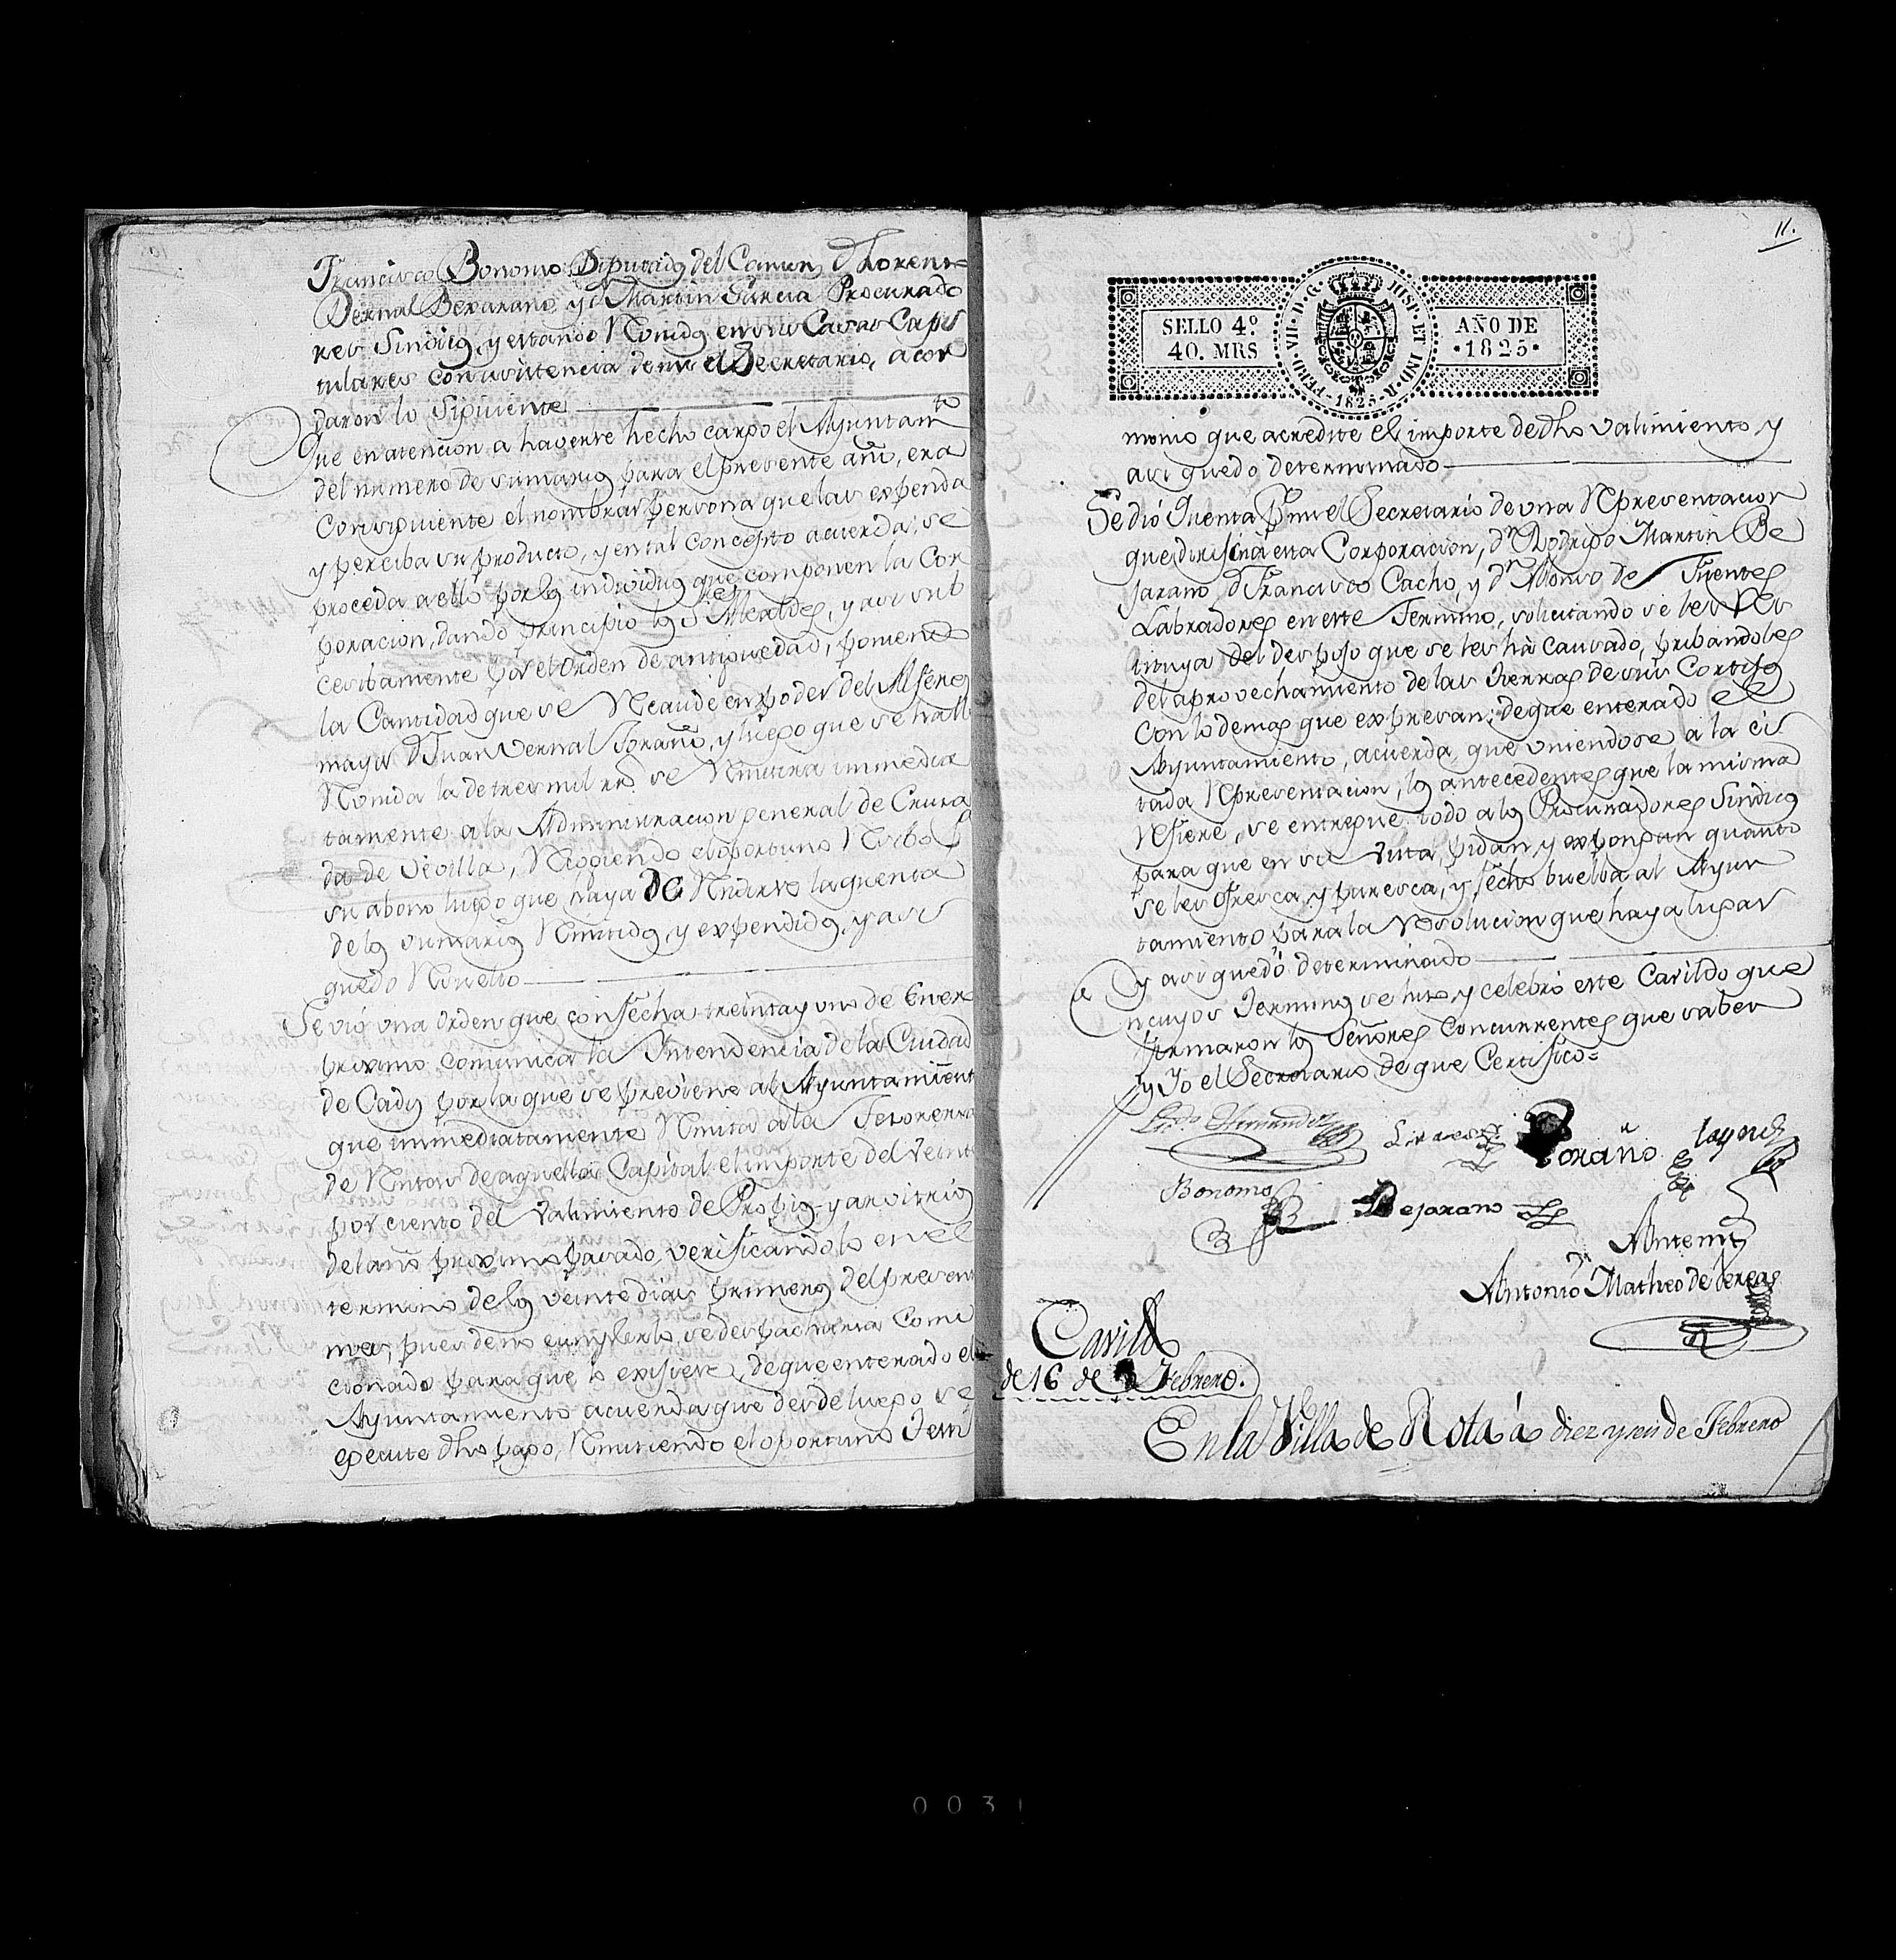 Francisco Bonomo Diputados del Comun, D. Lorenzo
Bernal Bexarano, y D. Martin Garcia Procurado
res Sindicos, y estando Reunidos en sus Casas Capi
tulares con asistencia de mi el Secretario, acor
daron lo siguiente
Que en atencion a haverse hecho cargo el Ayuntam.to
del numero de sumarios para el presente año, era
consiguiente el nombrar persona que las expenda
y perciba su producto, y en tal concepto acuerda, se
proceda a ello por los individuos que componen la Cor
poracion, dando principio los S.res Alcaldes, y asi sub
cesibamente por el orden de antiguedad, poniendo
la Cantidad que se Recaude en poder del Alferez
mayor D. Juan Vernal Foraño, y luego que se halle
Reunida la de tres mil rr.s se Remitira immedia
tamente a la Administracion general de Cruza
da de Sevilla, Recogiendo el oportuno Recibo p.a
su abono luego que haya de Rendirse la quenta
de los sumarios Remitidos, y expendidos, y asi
quedo Resuelto
Se vió una orden que con fecha treinta y uno de Enero
proximo comunica la Intendencia de la Ciudad
de Cadiz por la que se previene al Ayuntamiento
que immediatamente Remita a la Tesoreria
de Rentas de aquella Capital el importe del veinte
por ciento del Valimiento de Propios y arvitrios
del año proximo pasado, verificandolo en el
termino de los veinte dias primeros del presente
mes, pues de no cumplirlo se despachara Comi
cionado para que lo exsijiere, de que enterado el
Ayuntamiento acuerda que desde luego se
egecute dho pago, Remitiendo el oportuno Testi
11.
SELLO 4.º
40. MRS
FERD. VII. D. G. HISP. ET IND. R. 1825
AÑO DE
1825
monio que acredite el importe de dho valimiento, y
asi quedo determinado
Se dió Quenta p.r mi el Secretario de una Representacion
que dirisin a esta Corporacion, D.n Rodrigo Martin Be
jarano, D. Francisco Cacho, y D.n Alonso de Fuentes
Labradores en este Termino, solicitando se les Res
tituya del despojo que se les há causado, pribandoles
del aprovechamiento de las tierras de sus Cortijos
con lo demas que expresan; de que enterado el
Ayuntamiento, acuerda, que uniendose a la ci
tada Representacion, los antecedentes que la misma
Refiere, se entregue todo a los Procuradores Sindicos
para que en su vista, pidan y expongan quanto
se les ofresca, y paresca, y fecho buelba al Ayun
tamiento para la Resolucion que haya lugar
y asi quedó determinado
En cuyos Terminos se hizo y celebró este Cavildo que
firmaron los Señores Concurrentes que saben
y Yo el Secretario de que Certifico=
Lzdo Hernandez
Linares
Foraño
Laynez
Bonomo
Bejarano
Antemi
Antonio Matheo de
Cavildo
de 16 de Febrero.
En la Villa de Rota á diez y seis de Febrero
0031